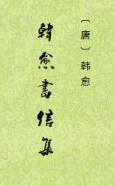 〔唐〕韩愈
韩愈书信集